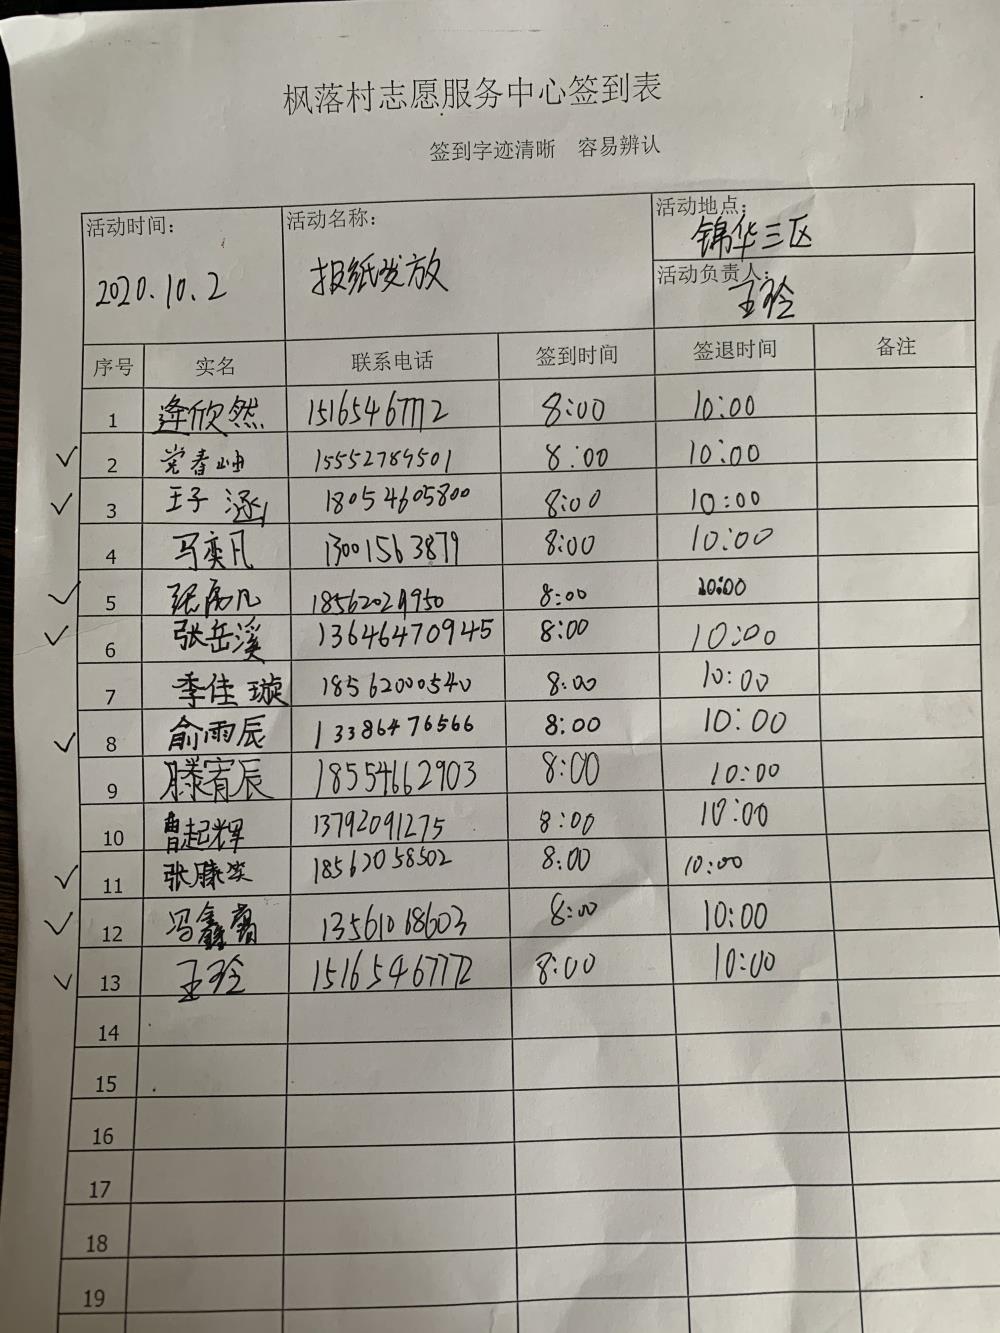 枫落村志愿服务中心签到表
签到字迹清晰 容易辨认
活动时间: 2020.10.2
活动名称: 报纸发放
活动地点: 锦华三区
活动负责人: 王玲
序号 实名 联系电话 签到时间 签退时间 备注
1 逄欣然 15165467772 8:00 10:00
2 党春岫 15552789501 8:00 10:00
3 王子涵 18054605800 8:00 10:00
4 马奕凡 13001563879 8:00 10:00
5 8:00 10:00
6 张岳溪 13646470945 8:00 10:00
7 季佳璇 18562000540 8:00 10:00
8 俞雨辰 13386476566 8:00 10:00
9 滕宥辰 18554662903 8:00 10:00
10 曹起辉 13792091275 8:00 10:00
11 18562058502 8:00 10:00
12 13561068603 8:00 10:00
13 王玲 15165467772 8:00 10:00
14
15
16
17
18
19